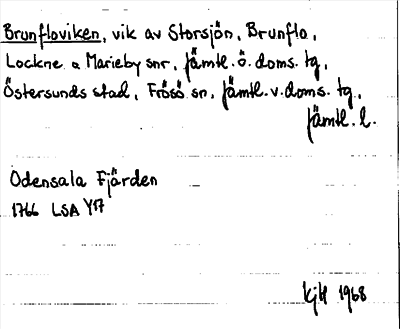 Brunfloviken, vik av Storsjön, Brunflo,
Lockne o Marieby snr, Jämtl. ö. doms. tg,
Östersunds stad, Frösö sn, Jämtl. v. doms. tg,
Jämtl. l.
Odensala Fjärden
1766 LSA Y17
KjH 1968